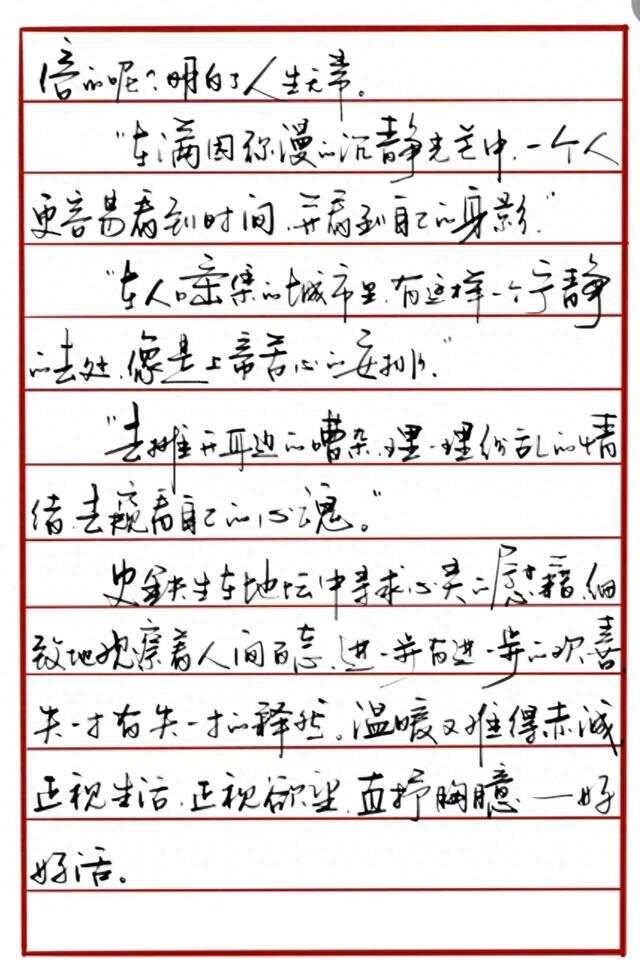 的呢?明白了人生无常。
“在满园弥漫的沉静光芒中,一个人
更容易看到时间,并看到自己的身影。”
“在人口密集的城市里,有这样一个宁静
的去处,像是上帝苦心的安排。”
“去推开耳边的嘈杂,理一理纷乱的情
绪,去窥看自己的心魂。”
史铁生在地坛中寻求心灵的慰藉,细
致地观察着人间百态,进一步有进一步的欢喜,
失一寸有失一寸的释然。温暖又难得赤诚,
正视生活,正视欲望,直抒胸臆——好
好活。